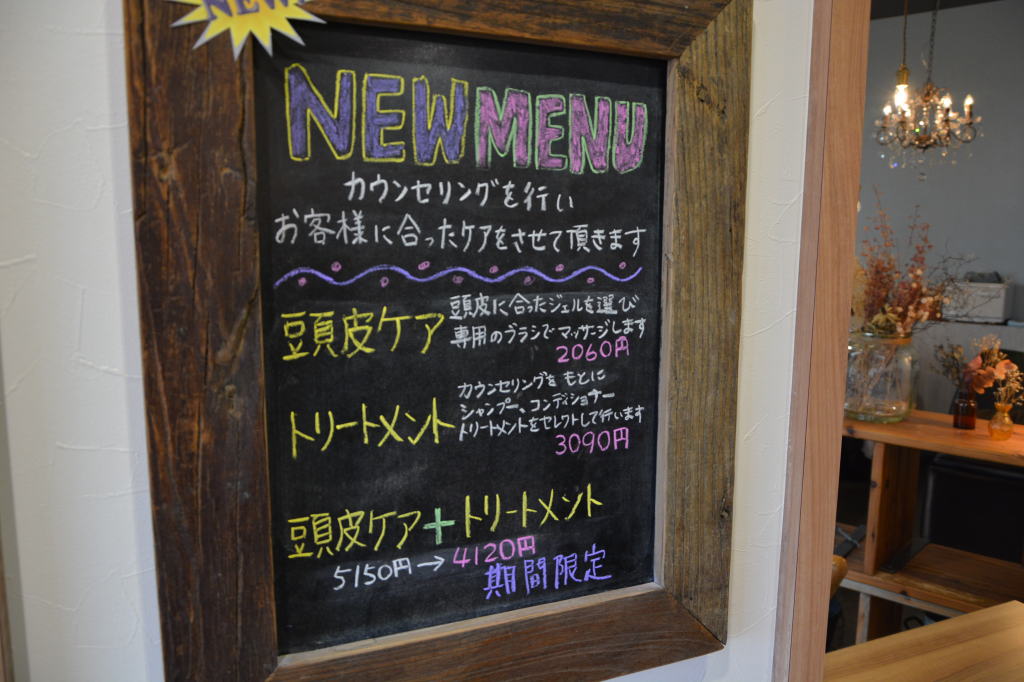 NEW
NEW MENU
カウンセリングを行い
お客様に合ったケアをさせて頂きます
頭皮ケア
頭皮に合ったジェルを選び
専用のブラシでマッサージします
2060円
トリートメント
カウンセリングをもとに
シャンプー、コンディショナー
トリートメントをセレクトして行います
3090円
頭皮ケア+トリートメント
5150円→4120円
期間限定